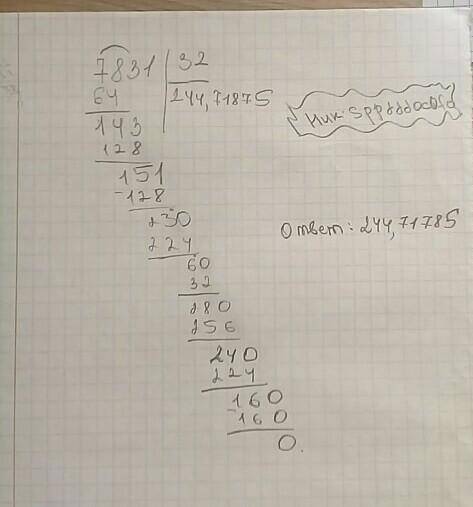 7831 | 32
64 244,71875
143
128
151
-128
230
224
60
32
280
256
240
224
160
-160
0.
Ответ: 244,71785